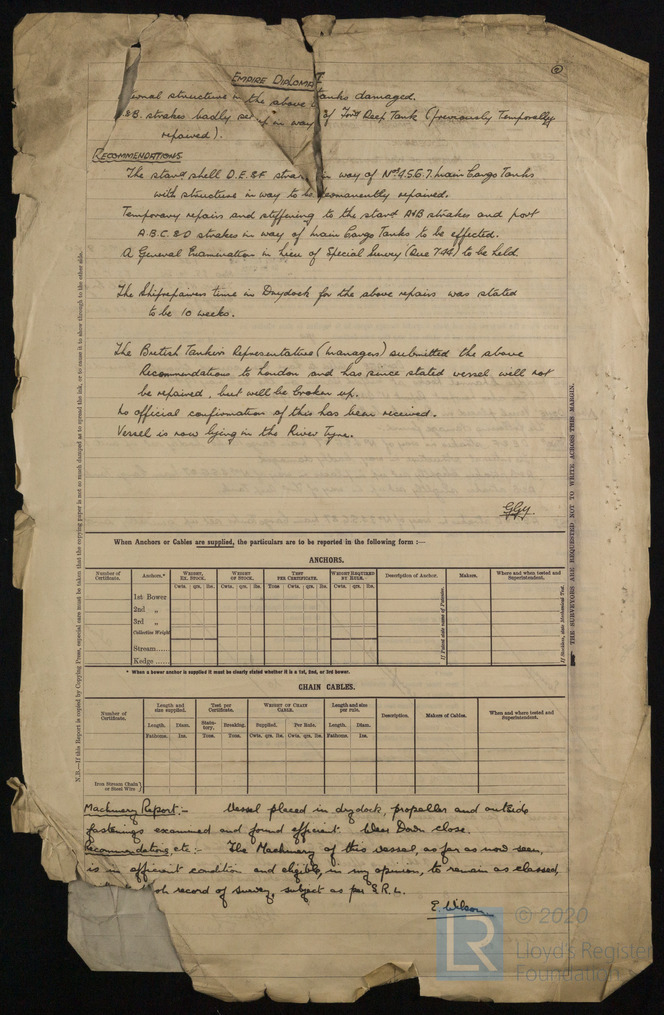 (2)
EMPIRE DIPLOMAT
ional structure in the above tanks damaged.
&B. strakes badly set up in way of For'd Deep Tank (previously Temporally
repaired).
RECOMMENDATIONS
The star'd shell D.E.&F strakes in way of Nos 4.5.6.7. Main Cargo Tanks
with structure in way to be permanently repaired.
Temporary repairs and stiffening to the star'd A&B strakes and port
A.B.C.&D strakes in way of Main Cargo Tanks to be effected.
A General Examination in lieu of Special Survey (Due 7.44) to be held.
The Shiprepairers time in Drydock for the above repairs was stated
to be 10 weeks.
The British Tankers Representative (Managers) submitted the above
Recommendations to London and has since stated vessel will not
be repaired, but will be broken up.
No official confirmation of this has been received.
Vessel is now lying in the River Tyne.
GGY.
When Anchors or Cables are supplied, the particulars are to be reported in the following form :—
ANCHORS.
Number of Certificate. Anchors.* WEIGHT, EX. STOCK. WEIGHT OF STOCK. TEST PER CERTIFICATE. WEIGHT REQUIRED BY RULE. Description of Anchor. Makers. Where and when tested and Superintendent.
Cwts. qrs. lbs. Cwts. qrs. lbs. Tons Cwts. qrs. lbs. Cwts. qrs. lbs.
1st Bower
2nd „
3rd „
Collective Weight
Stream
Kedge
If Patent state name of Patentee.
If Stockless, state Mechanical Test.
* When a bower anchor is supplied it must be clearly stated whether it is a 1st, 2nd, or 3rd bower.
CHAIN CABLES.
Number of Certificate. Length and size supplied. Test per Certificate. WEIGHT OF CHAIN CABLE. Length and size per rule. Description. Makers of Cables. Where and when tested and Superintendent.
Length. Diam. Statutory. Breaking. Supplied. Per Rule. Length. Diam.
Fathoms. Ins. Tons. Tons. Cwts. qrs. lbs. Cwts. qrs. lbs. Fathoms. Ins.
Iron Stream Chain
or Steel Wire
Machinery Report:- Vessel placed in drydock, propeller and outside
fastenings examined and found efficient. Wear Down close.
Recommendations, etc:- The Machinery of this vessel, as far as now seen,
is in efficient condition and eligible, in my opinion, to remain as classed,
record of survey, subject as per S.R.L.
E. Wilson
N.B.—If this Report is copied by Copying Press, especial care must be taken that the copying paper is not so much damped as to spread the ink, or to cause it to show through to the other side.
THE SURVEYORS ARE REQUESTED NOT TO WRITE ACROSS THIS MARGIN.
LR
© 2020
Lloyd's Register
Foundation